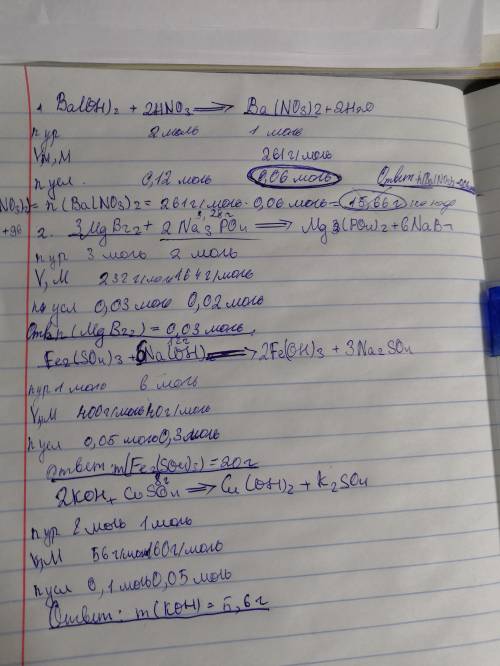 1. Ba(OH)2 + 2HNO3 ⟹ Ba(NO3)2+2H2O
n ур 2 моль 1 моль
V, M, M 261 г/моль
n усл. 0,12 моль 0,06 моль Ответ
NO3)2= n (Ba(NO3)2 = 261 г/моль · 0,06 моль= 15,66 г
+96 2. 3MgBr2+ 2 Na3PO4 ⟹ Mg3(PO4)2+6NaBr
n ур 3 моль 2 моль
V, M 232 г/моль 164 г/моль
n усл 0,03 моль 0,02 моль
Отв n (MgBr2) = 0,03 моль.
12г
Fe2(SO4)3 +6Na(OH) ⟹ 2Fe(OH)3 + 3Na2SO4
n ур 1 моль 6 моль
V, M 400 г/моль 40 г/моль
n усл 0,05 моль 0,3 моль
Ответ m(Fe2(SO4)3) = 20 г
8г
2KOH+ CuSO4 ⟹ Cu(OH)2 + K2SO4
n ур 2 моль 1 моль
V, M 56 г/моль 160 г/моль
n усл 0,1 моль 0,05 моль
Ответ: m (KOH) = 5,6 г